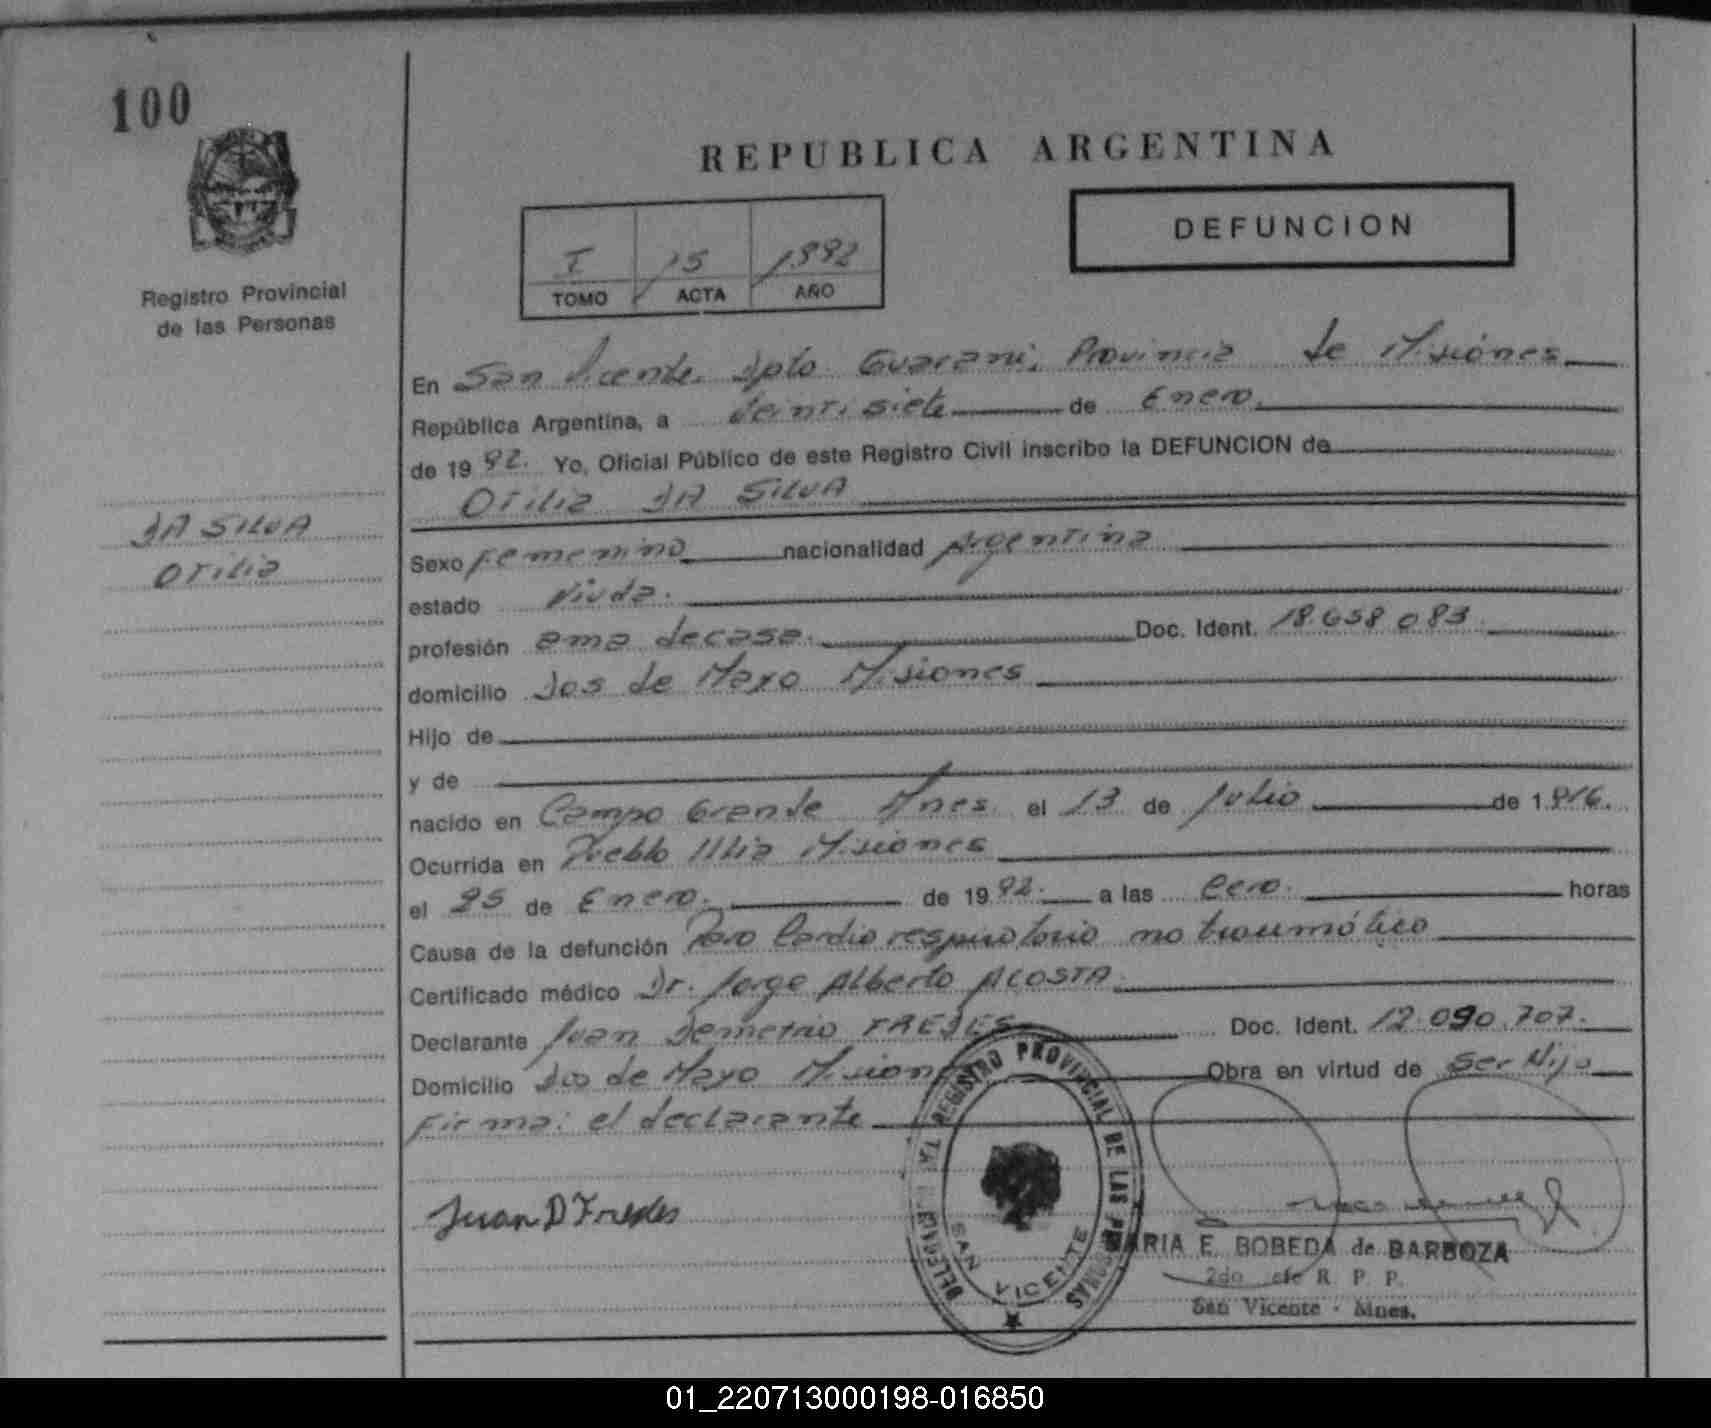 100
REPUBLICA ARGENTINA
DEFUNCION
I 15 1992
TOMO ACTA AÑO
Registro Provincial
de las Personas
En San Vicente. Dpto. Guarani, Provincia de Misiones
República Argentina, a Veinti siete de Enero.
de 1992. Yo, Oficial Público de este Registro Civil inscribo la DEFUNCION de
Otilia DA SILVA
DA SILVA
Otilia
Sexo Femenino nacionalidad Argentina
estado Viuda.
profesión ama de casa. Doc. Ident. 18.658.083.
domicilio Dos de Mayo Misiones
Hijo de
y de
nacido en Campo Grande Mnes el 13 de Julio de 1916.
Ocurrida en Pueblo Illia Misiones
el 25 de Enero. de 1992. a las Cero. horas
Causa de la defunción Paro Cardio respiratorio no traumático
Certificado médico Dr. Jorge Alberto ACOSTA.
Declarante Juan Demetrio Doc. Ident. 12.090.707.
Domicilio Dos de Mayo Misiones Obra en virtud de Ser Hijo
Firma: el declarante
Juan D
DELEGACION DEL REGISTRO PROVINCIAL DE LAS PERSONAS
SAN VICENTE
MARIA E. BOBEDA de BARBOZA
2do. Jefe R. P. P.
San Vicente - Mnes.
01_220713000198-016850